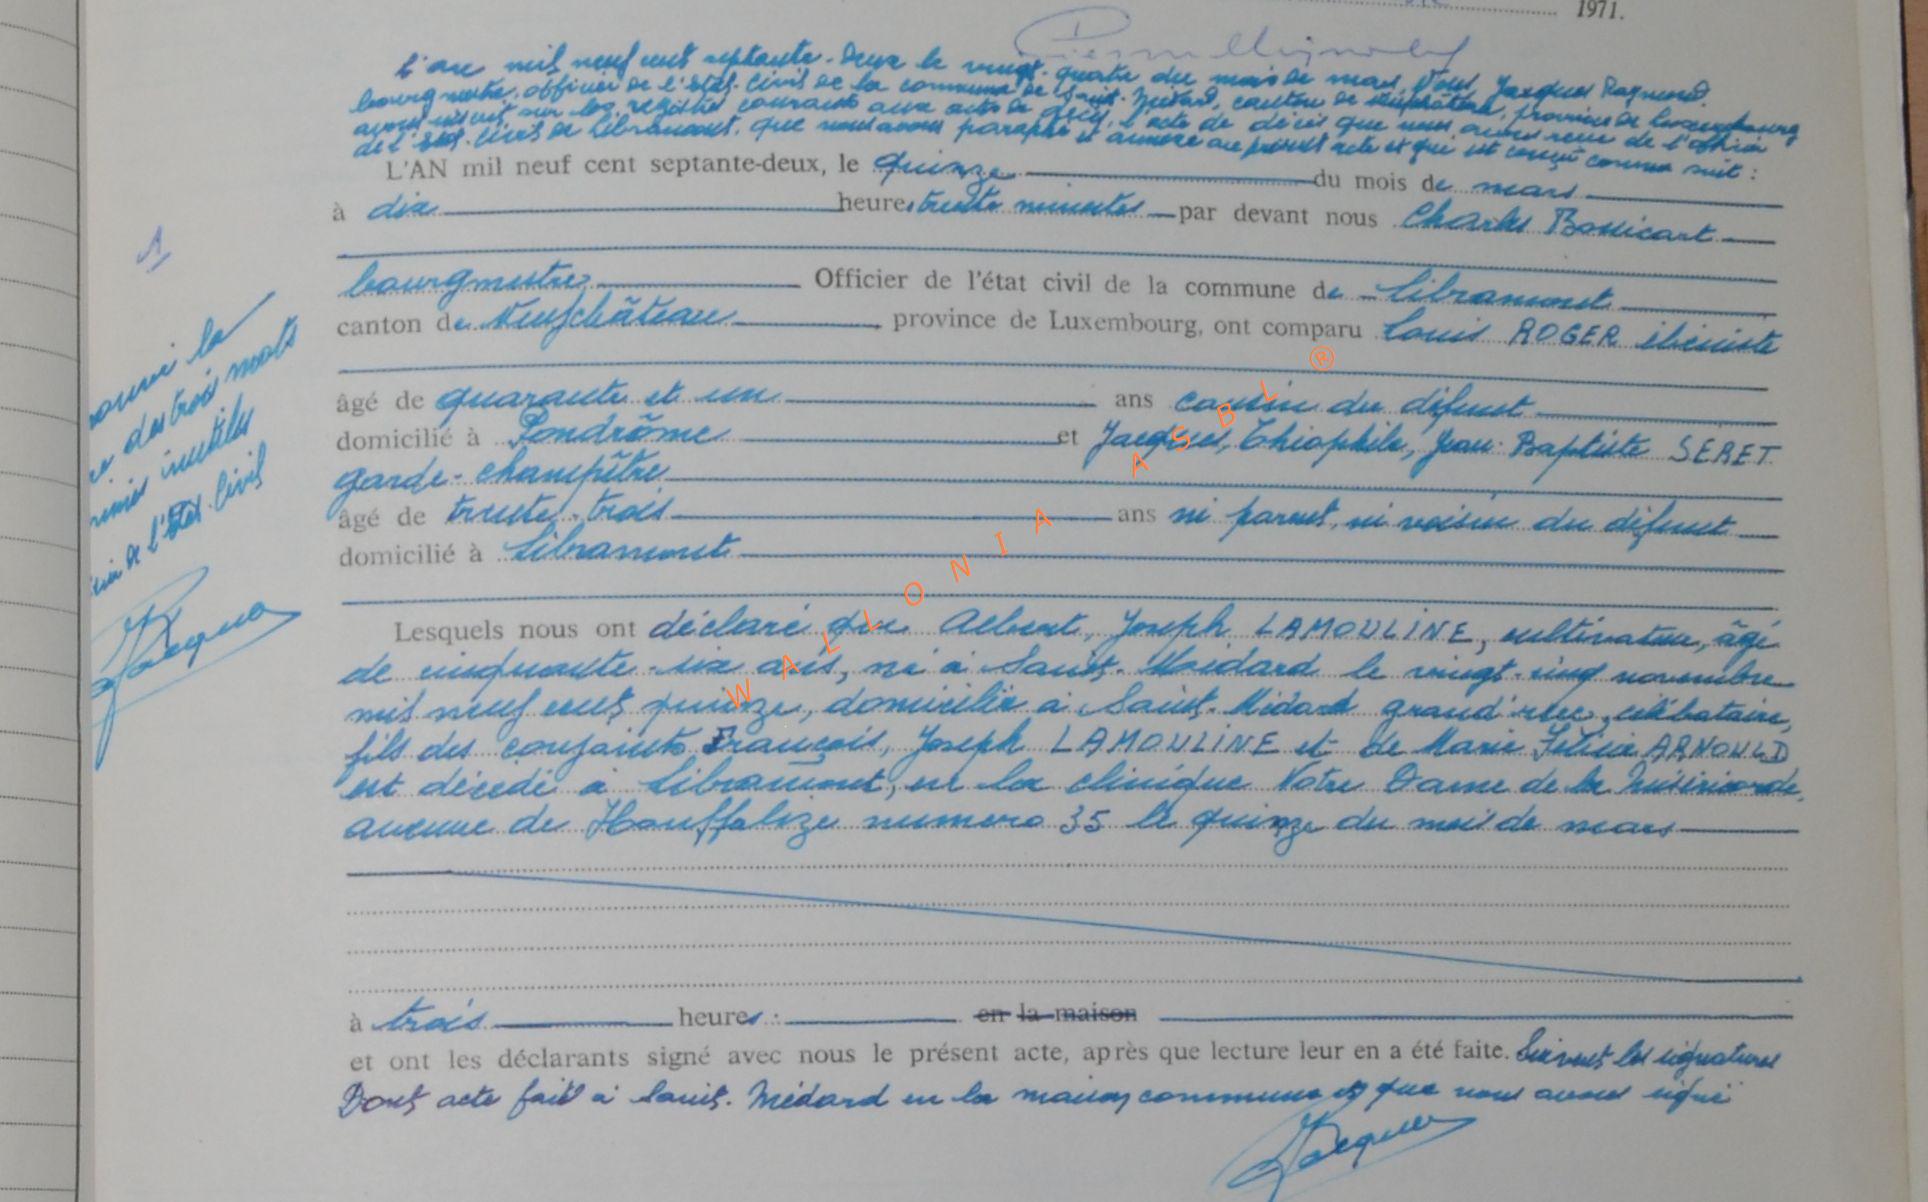 1971.
L'an mil neuf cent septante-deux le vingt-quatre du mois de mars, Nous Jacques Raymond
bourgmestre, officier de l'état-civil de la commune de Saint-Médard, canton de Neufchâteau, province de Luxembourg
avons inscrit sur les registres courants aux actes de décès, l'acte de décès que nous avons reçu de l'officier
de l'état-civil de Libramont, que nous avons paraphé et annexé au présent acte et qui est conçu comme suit :
L'AN mil neuf cent septante-deux, le quinze du mois de mars
à dix heures trente minutes par devant nous Charles Bossicart
bourgmestre Officier de l'état civil de la commune de Libramont
canton de Neufchâteau, province de Luxembourg, ont comparu Louis ROGER ébéniste
âgé de quarante et un ans cousin du défunt
domicilié à Pondrôme et Jacques, Théophile, Jean-Baptiste SERET
garde-champêtre
âgé de trente-trois ans ni parent, ni voisin du défunt
domicilié à Libramont
Lesquels nous ont déclaré que Albert, Joseph LAMOULINE, cultivateur, âgé
de cinquante-six ans, né à Saint-Médard le vingt-cinq novembre
mil neuf cent quinze, domicilié à Saint-Médard grand'rue, célibataire,
fils des conjoints François, Joseph LAMOULINE et de Marie Félicie ARNOULD
est décédé à Libramont, en la clinique Notre Dame de la Miséricorde,
avenue de Houffalize numéro 35 le quinze du mois de mars
à trois heures : en la maison
et ont les déclarants signé avec nous le présent acte, après que lecture leur en a été faite. Suivent les signatures
Dont acte fait à Saint-Médard en la maison communale et que nous avons signé
1
la
des trois mots
inutiles
de l'Etat-Civil
WALLONIA ASBL ®